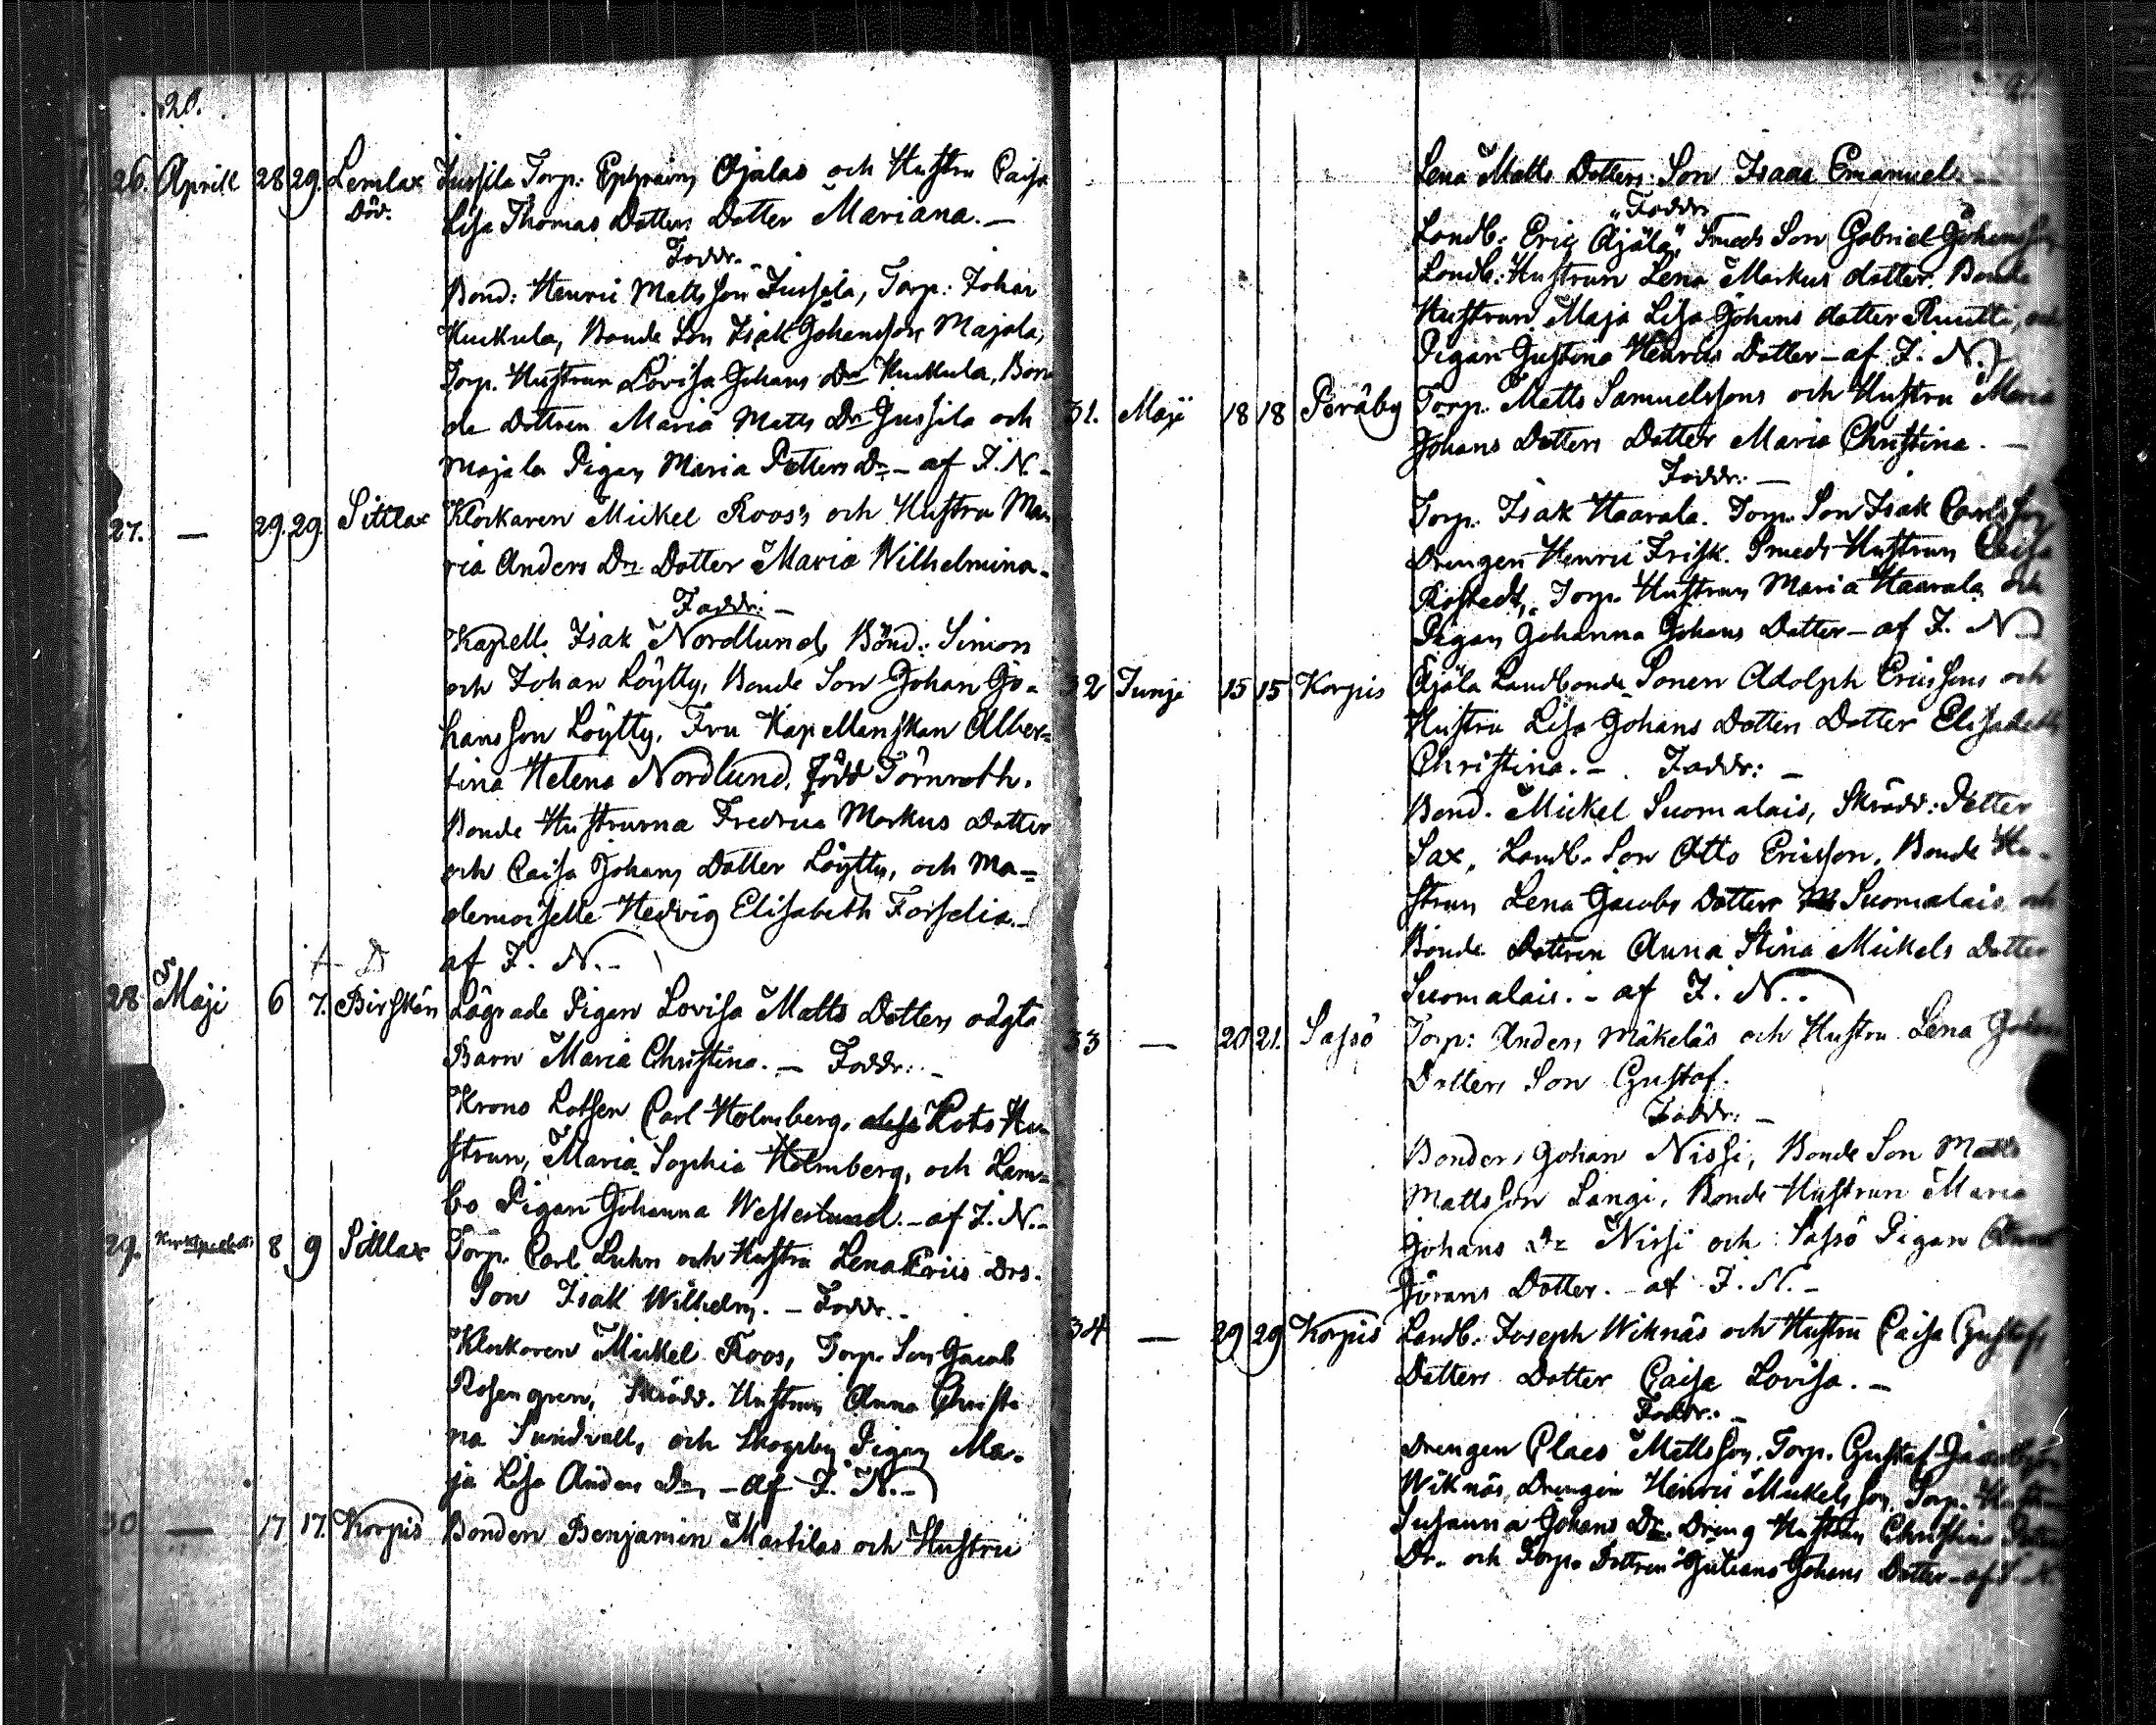 20.
26. Aprill 28 29. Lemlax Jussila Torp: Ephraim Ojalas och Hustru Caisa
Död. Lisa Thomas Dotters Dotter Mariana. –
Faddr. –
Bond: Henric Mattsson Jussila, Torp: Johan
Kuckula, Bonde Son Isak Johansson Majala,
Torp. Hustrun Lovisa Johans Dr Kuckula, Bon
de Dottren Maria Matts Dr Jussila och
Majala Pigan Maria Petters Dr – af I. N. –
27. — 29. 29. Sittlax Klockaren Mickel Roos's och Hustru Ma
ria Anders Drs Dotter Maria Wilhelmina.
Faddr: –
Kapell. Isak Nordlund, Bönd: Simon
och Johan Löytty, Bonde Son Johan Jo=
hansson Löytty, Fru Kapellanskan Alber=
tina Helena Nordlund, född Törnroth.
Bonde Hustrurna Fredrica Markus Dotter
och Caisa Johans Dotter Löytty, och Ma=
demoiselle Hedvig Elisabeth Forselia. –
af I. N. –
28 Maji 6 7. Birskär Lägrade Pigan Lovisa Matts Dotters oägta
Barn Maria Christina. – Faddr: –
Krono Lotsen Carl Holmberg, Lots Hu
strun, Maria Sophia Holmberg, och Lam=
bo Pigan Johanna Westerlund. – af I. N. –
29. 8 9 Sittlax Torp. Carl Luhrs och Hustru Lena Erics Drs.
Son Isak Wilhelm. – Faddr. –
Klockaren Mickel Roos, Torp. Son Jacob
Rosengren, Skrädd. Hustrun Anna Christi
na Sundvall, och Skogsby Pigan Ma=
ja Lisa Anders Dr, – af I. N. –
30 — 17 17. Korpis Bonden Benjamin Martilas och Hustru
Lena Matts Dotters Son Isaac Emanuel. –
Faddr
Landb: Eric Äjälä, Smeds Son Gabriel Johansson
Landb: Hustrun Lena Markus dotter. Bonde
Hustrun Maja Lisa Johans dotter
Pigan Gustava Henrics Dotter – af I. N.
31. Maji 18 18 Peräby Torp. Matts Samuelssons och Hustru Maria
Johans Dotters Dotter Maria Christina. –
Faddr: –
Torp. Isak Haarala. Torp. Son Isak Carlsson
Drengen Henric Frisk. Smeds Hustrun Caisa
Torp. Hustrun Maria Haarala och
Pigan Johanna Johans Dotter – af I. N.
32 Junji 15 15 Korpis Äjälä Landbonde Sonen Adolph Ericssons och
Hustru Lisa Johans Dotters Dotter Elisabeth
Christina. – Faddr: –
Bond. Mickel Suomalais, Skrädd: Petter
Sax, Landb. Son Otto Ericsson, Bonde Hu=
strun Lena Jacobs Dotter Suomalais och
Bonde Dottren Anna Stina Mickels Dotter
Suomalais. – af I. N.
33 — 20 21. Sassö Torp: Anders Mäkeläs och Hustru Lena Johans
Dotters Son Gustaf.
Faddr: –
Bonden Johan Nissi, Bonde Son Matts
Mattsson Langi, Bonde Hustrun Maria
Johans Dr Nissi och Sassö Pigan Anna
Görans Dotter. – af I. N. –
34 — 29 29 Korpis Landb: Joseph Wiknäs och Hustru Caisa Gustafs
Dotters Dotter Caisa Lovisa. –
Faddr: –
Drengen Claes Mattsson, Torp. Gustaf Jacobsson
Wiknäs, Drengen Henric Mickelsson, Torp. Hustrun
Susanna Johans Dr. Dreng Hustrun Christina Petters
Dr. och Torp. Dottren Juliana Johans Dotter – af I. N.